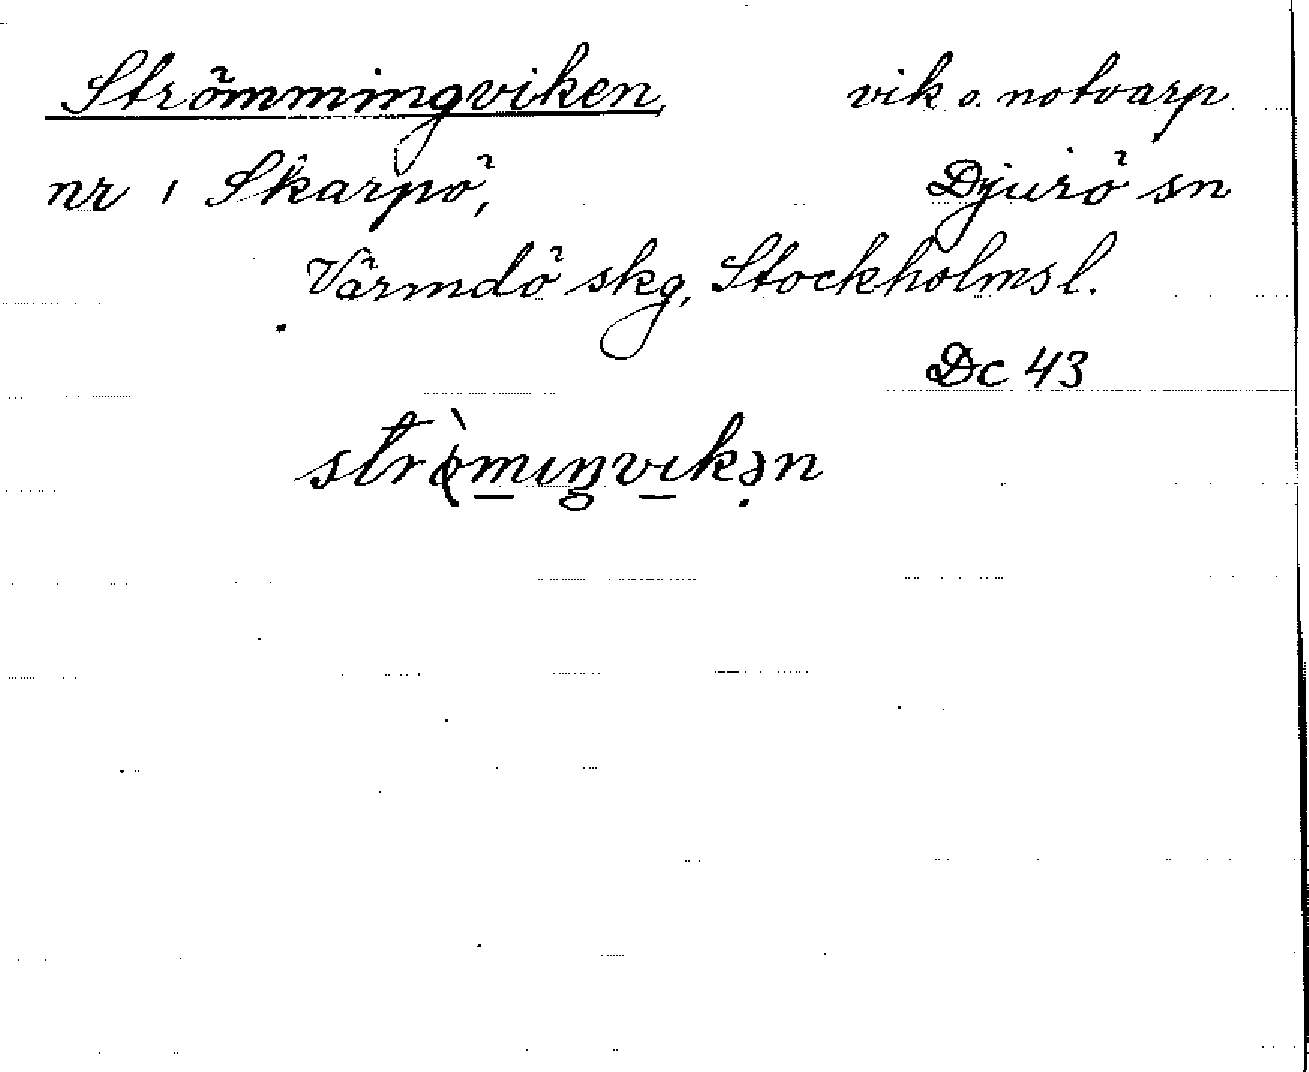 Strömmingviken, vik o. notvarp
nr 1 Skarpö, Djurö sn
Värmdö skg, Stockholms l.
Dc 43